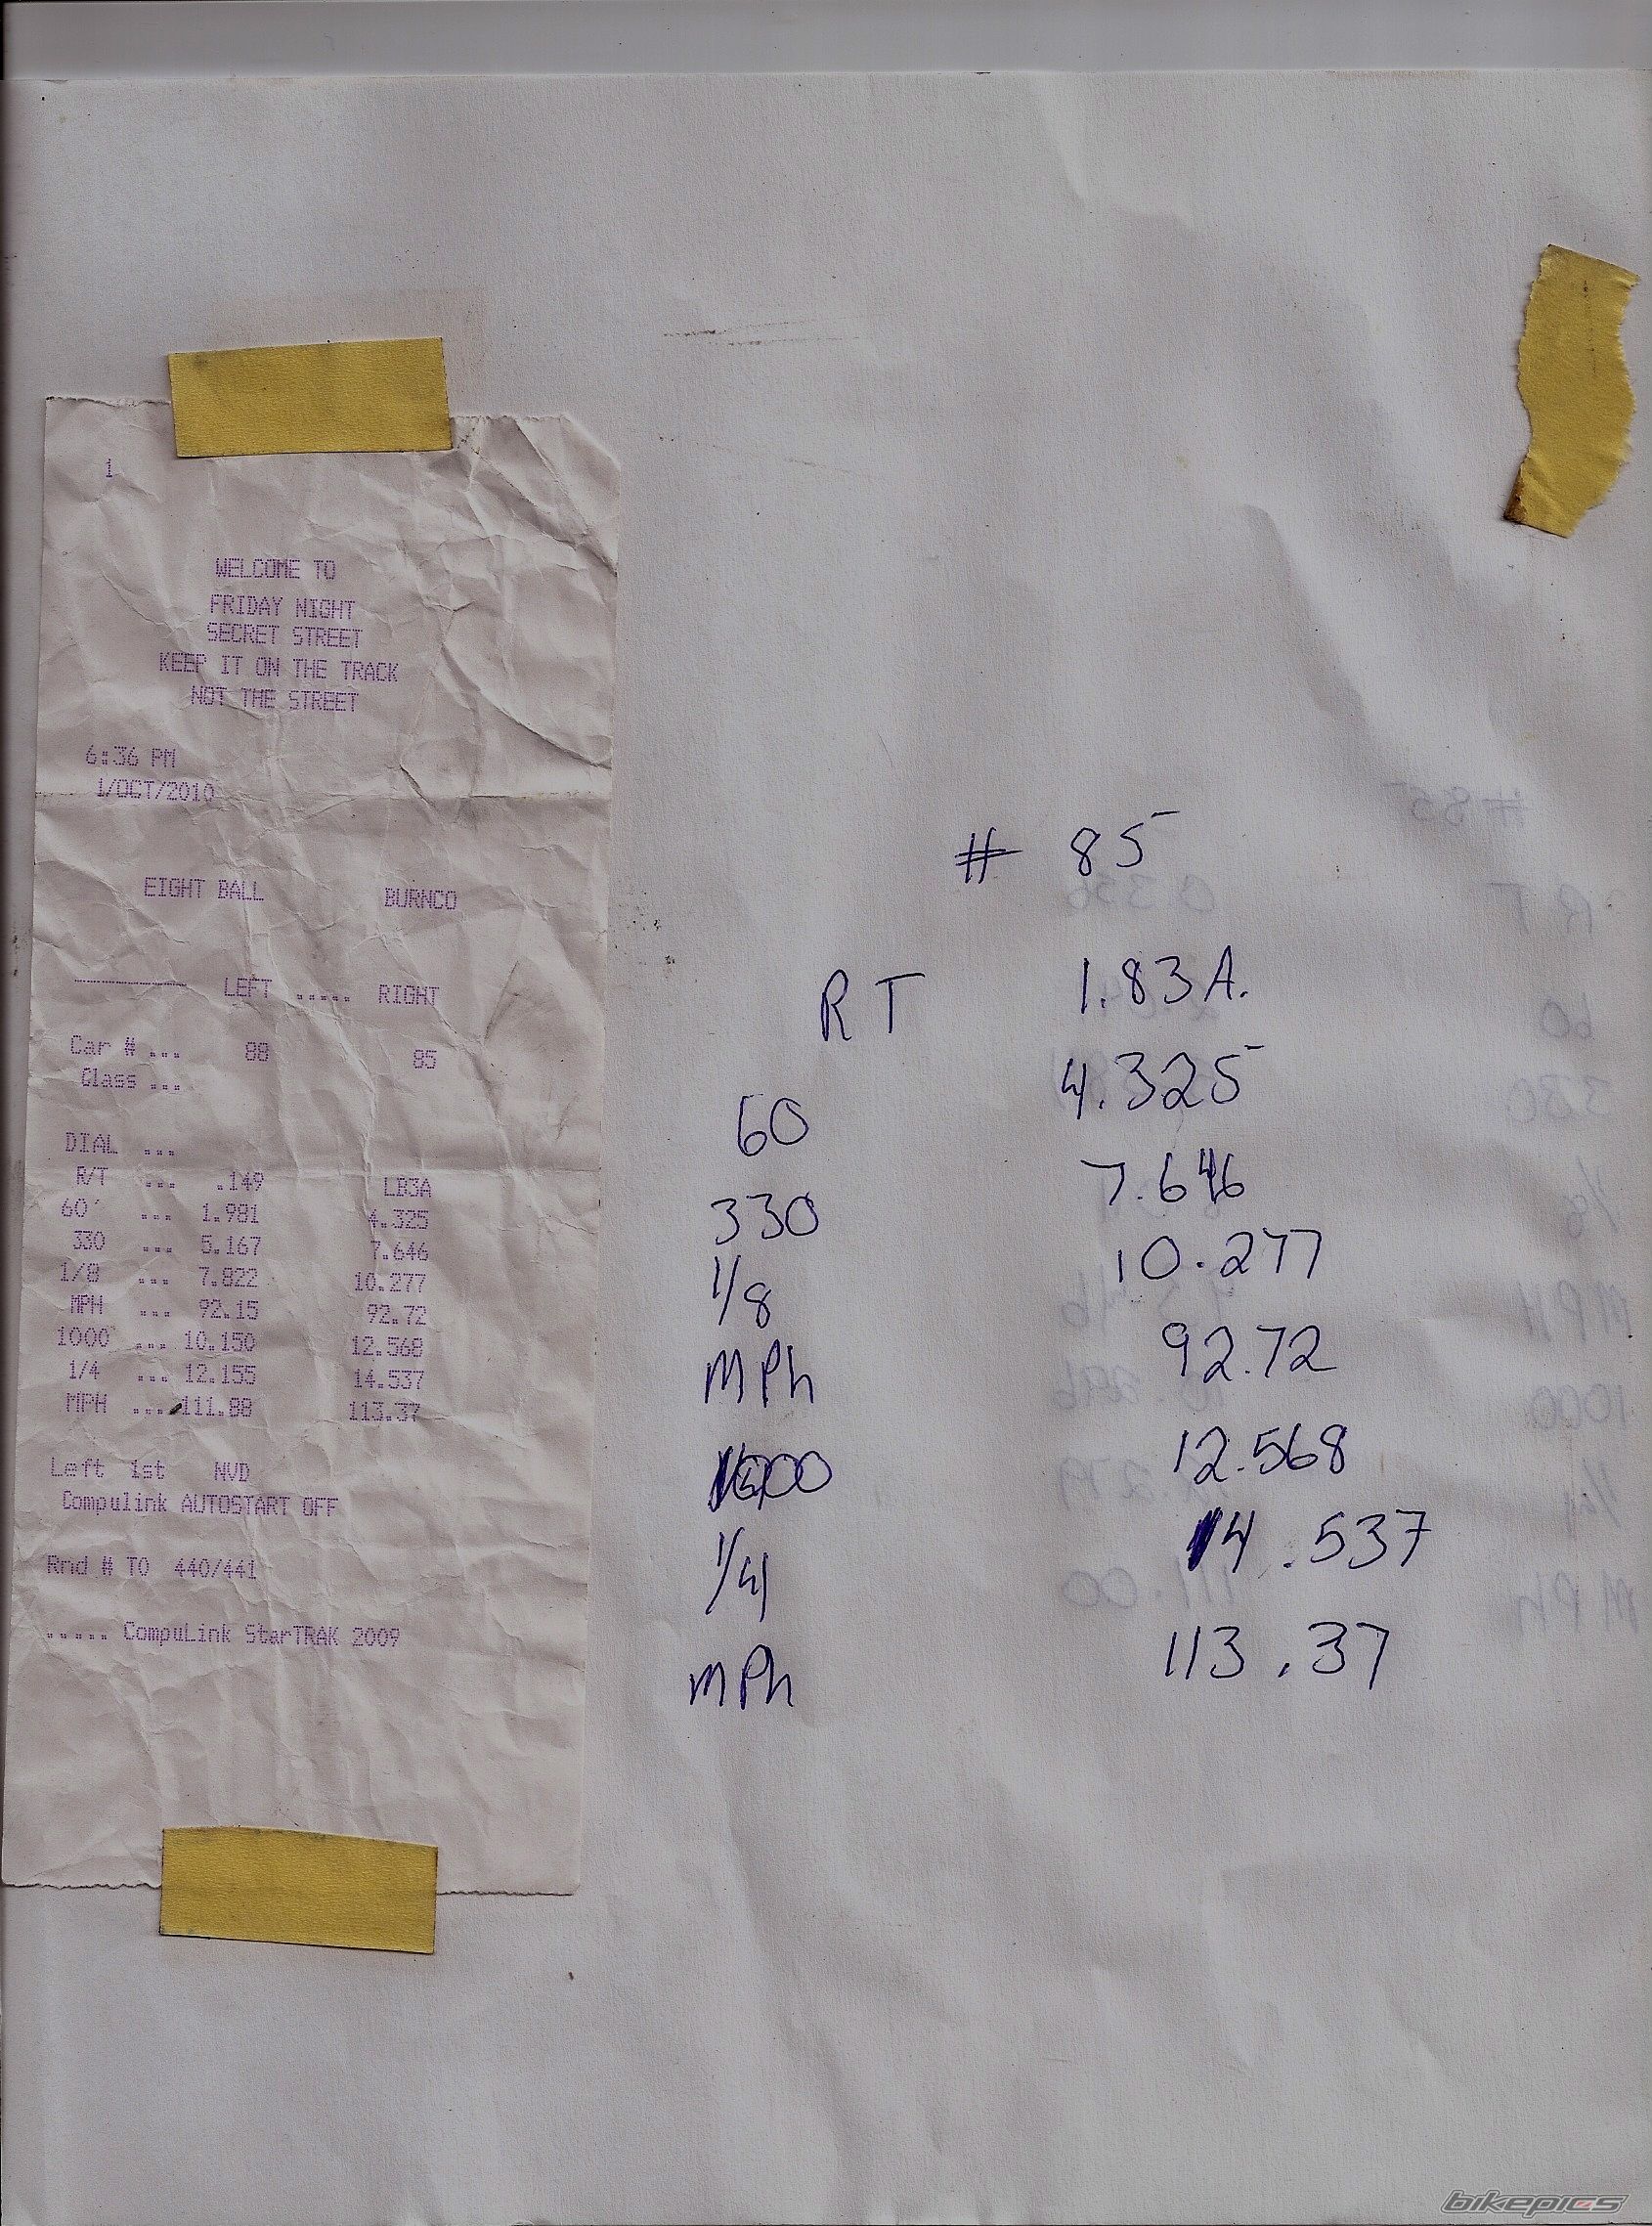 1
WELCOME TO
FRIDAY NIGHT
SECRET STREET
KEEP IT ON THE TRACK
NOT THE STREET
6:36 PM
1/OCT/2010
EIGHT BALL BURNCO
LEFT ..... RIGHT
Car # ... 88 85
Class ...
DIAL ...
R/T ... .149 LB3A
60' ... 1.981 4.325
330 ... 5.167 7.646
1/8 ... 7.822 10.277
MPH ... 92.15 92.72
1000 ... 10.150 12.568
1/4 ... 12.155 14.537
MPH .... 111.88 113.37
Left 1st NVD
Compulink AUTOSTART OFF
Rnd # TO 440/441
..... CompuLink StarTRAK 2009
# 85
RT 1.83A.
60 4.325
330 7.646
1/8 10.277
MPh 92.72
1000 12.568
1/4 14.537
MPh 113.37
bikepics